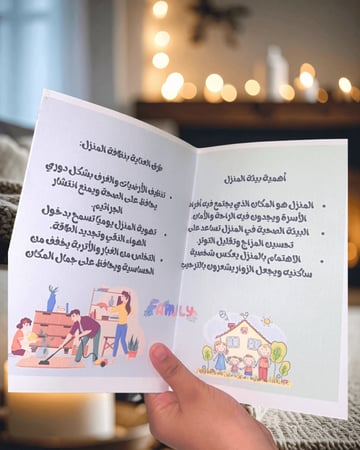 أهمية بيئة المنزل
المنزل هو المكان الذي يجتمع فيه أفراد
الأسرة ويجدون فيه الراحة والأمان.
البيئة الصحية في المنزل تساعد على
تحسين المزاج وتقليل التوتر.
الاهتمام بالمنزل يعكس شخصية
ساكنيه ويجعل الزوار يشعرون بالترحيب
طرق العناية بنظافة المنزل:
تنظيف الأرضيات والغرف بشكل دوري
يحافظ على الصحة ويمنع انتشار
الجراثيم.
تهوية المنزل يوميًا تسمح بدخول
الهواء النقي وتجديد الطاقة.
التخلص من الغبار والأتربة يخفف من
الحساسية ويحافظ على جمال المكان
FAMILY